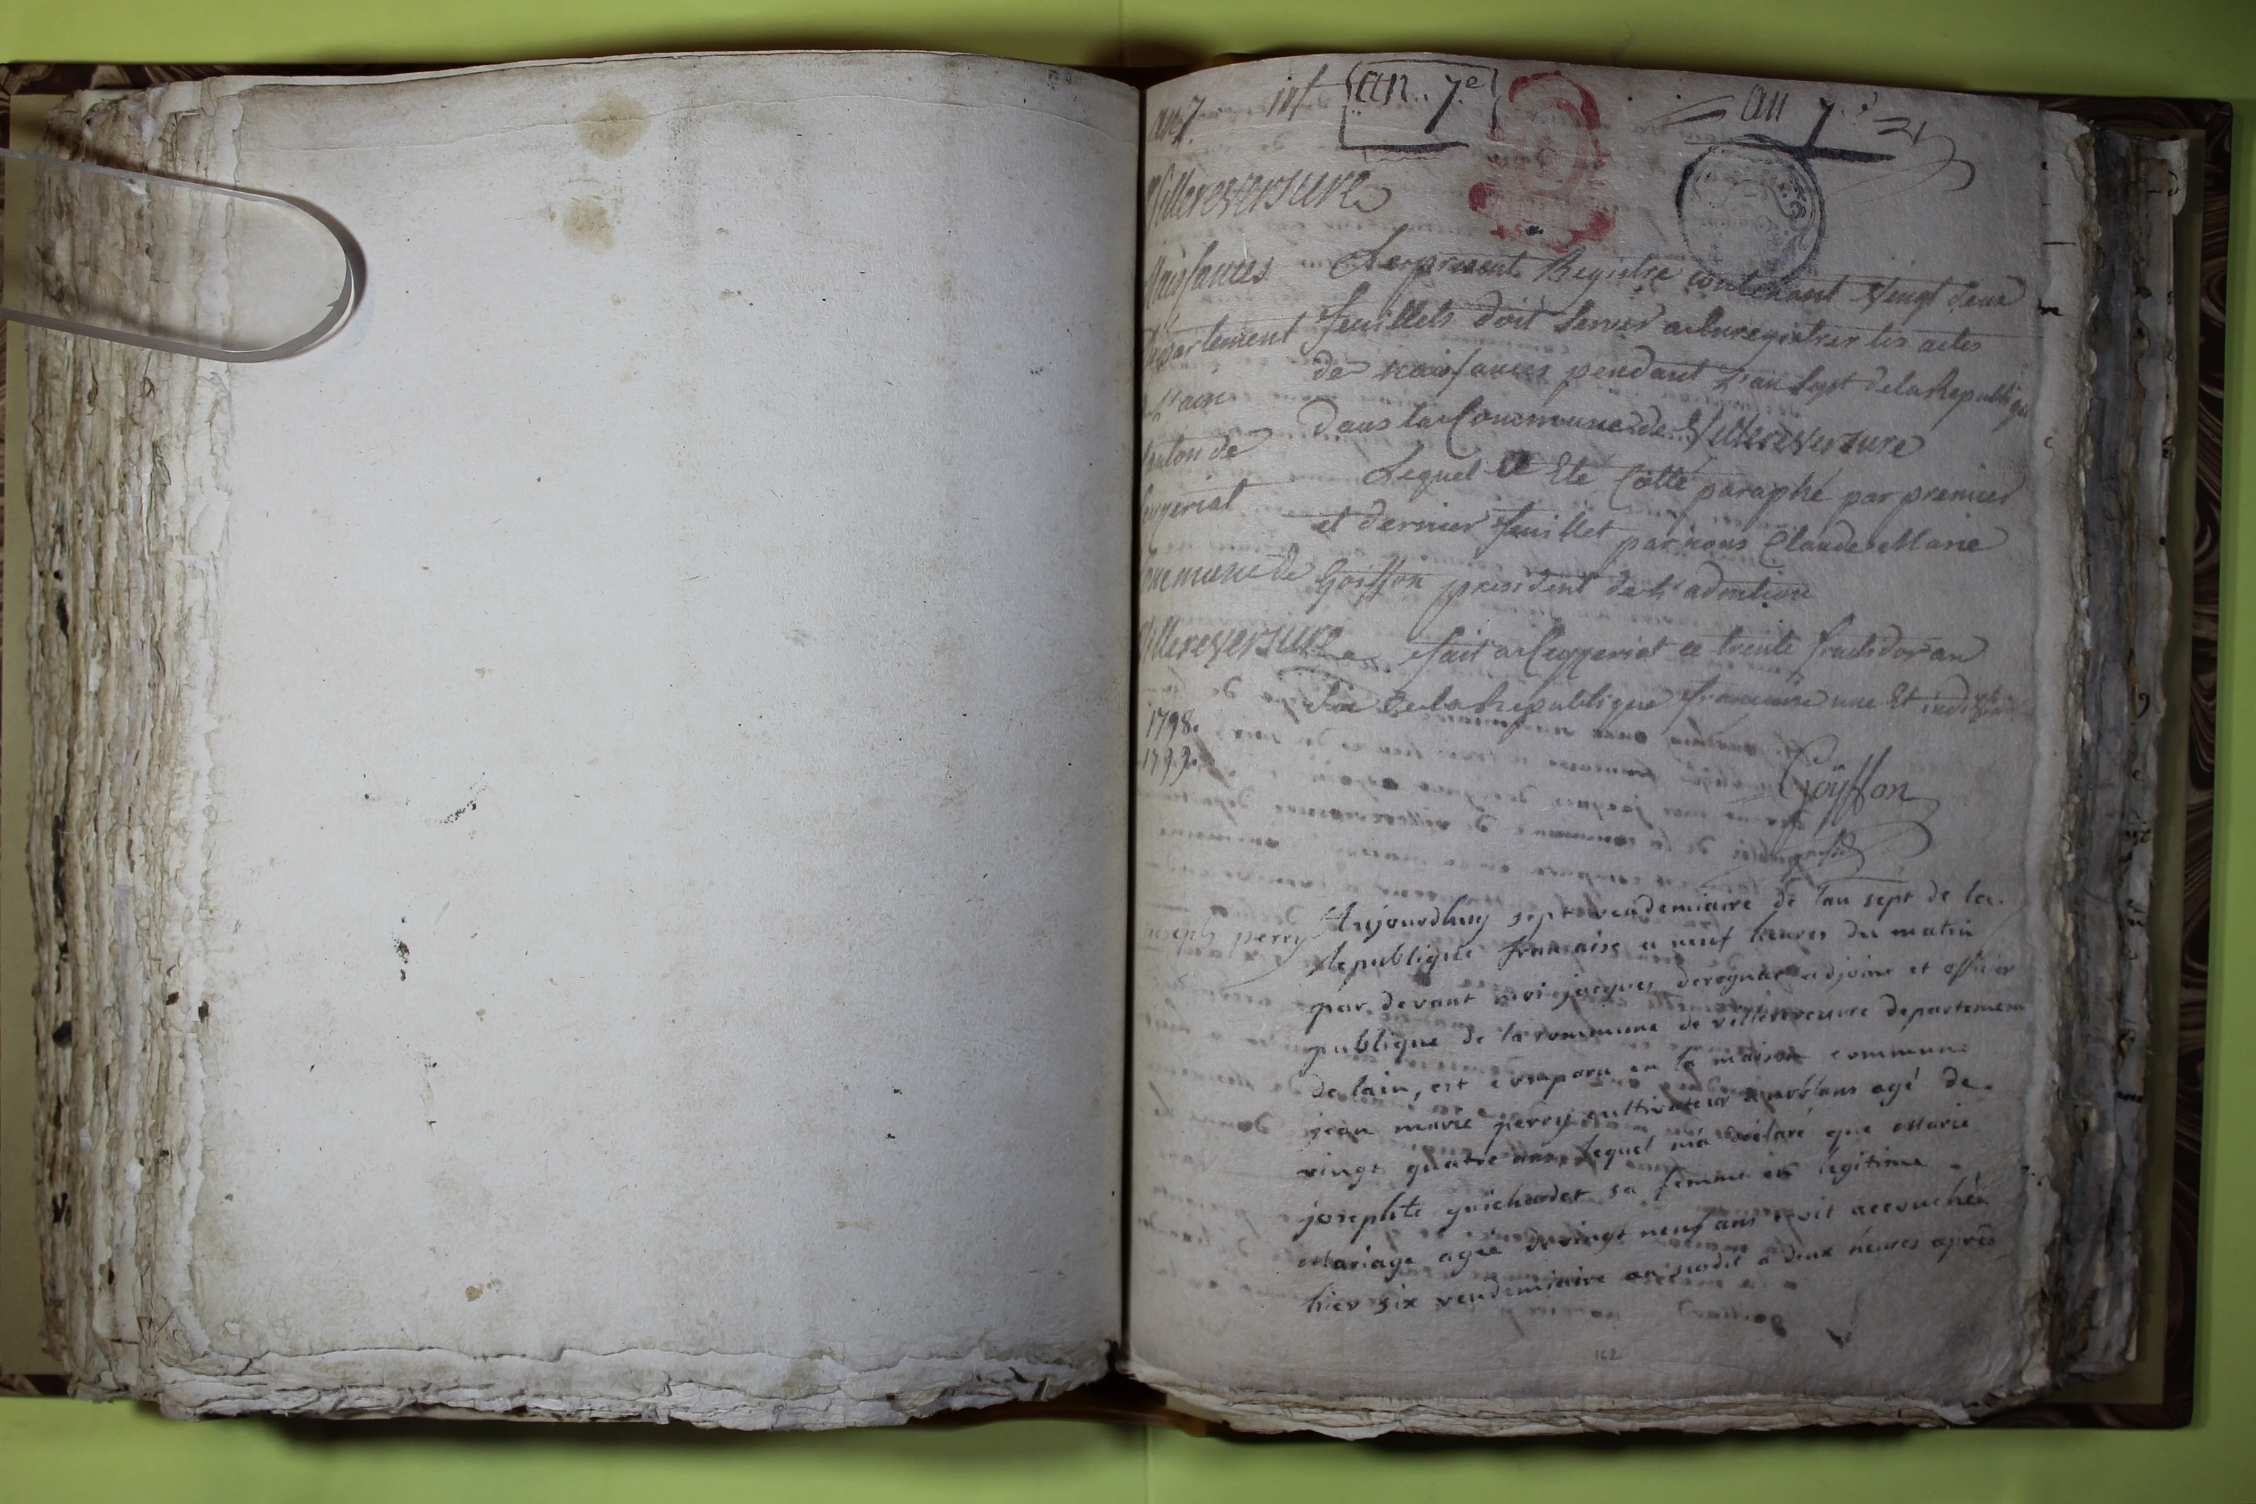 an 7 an 7e an 7e
Villereversure
Naissances
Département
de l'ain
Canton de
Ceyzeriat
Commune de
Villereversure
1798.
1799.
Le present Registre contenant vingt deux
feuillets doit servir a Enregistrer les actes
de naissances pendant l'an sept de la Republique
dans la Commune de Villereversure
Lequel a Eté Cotté paraphé par premier
et dernier feuillet par nous Claude Marie
Goiffon president de l'adontion
fait a Ceyzeriat ce trente fructidor an
six de la Republique francaise une Et indivisible
Goÿffon
joseph perry
Aujourdhuy sept vendemiaire de lan sept de la
Republique francaise a neuf heures du matin
par devant moi jacques derognat adjoint et officier
publique de la commune de villereversure departement
de lain, est comparu en la maison commune
jean marie perry cultivateur a noblans agé de
vingt quatre ans, lequel m'a déclaré que Marie
josephte guichardet sa femme en légitime
Mariage agée de vingt neuf ans soit accouchée
hier six vendemiaire an susdit a deux heures après
162